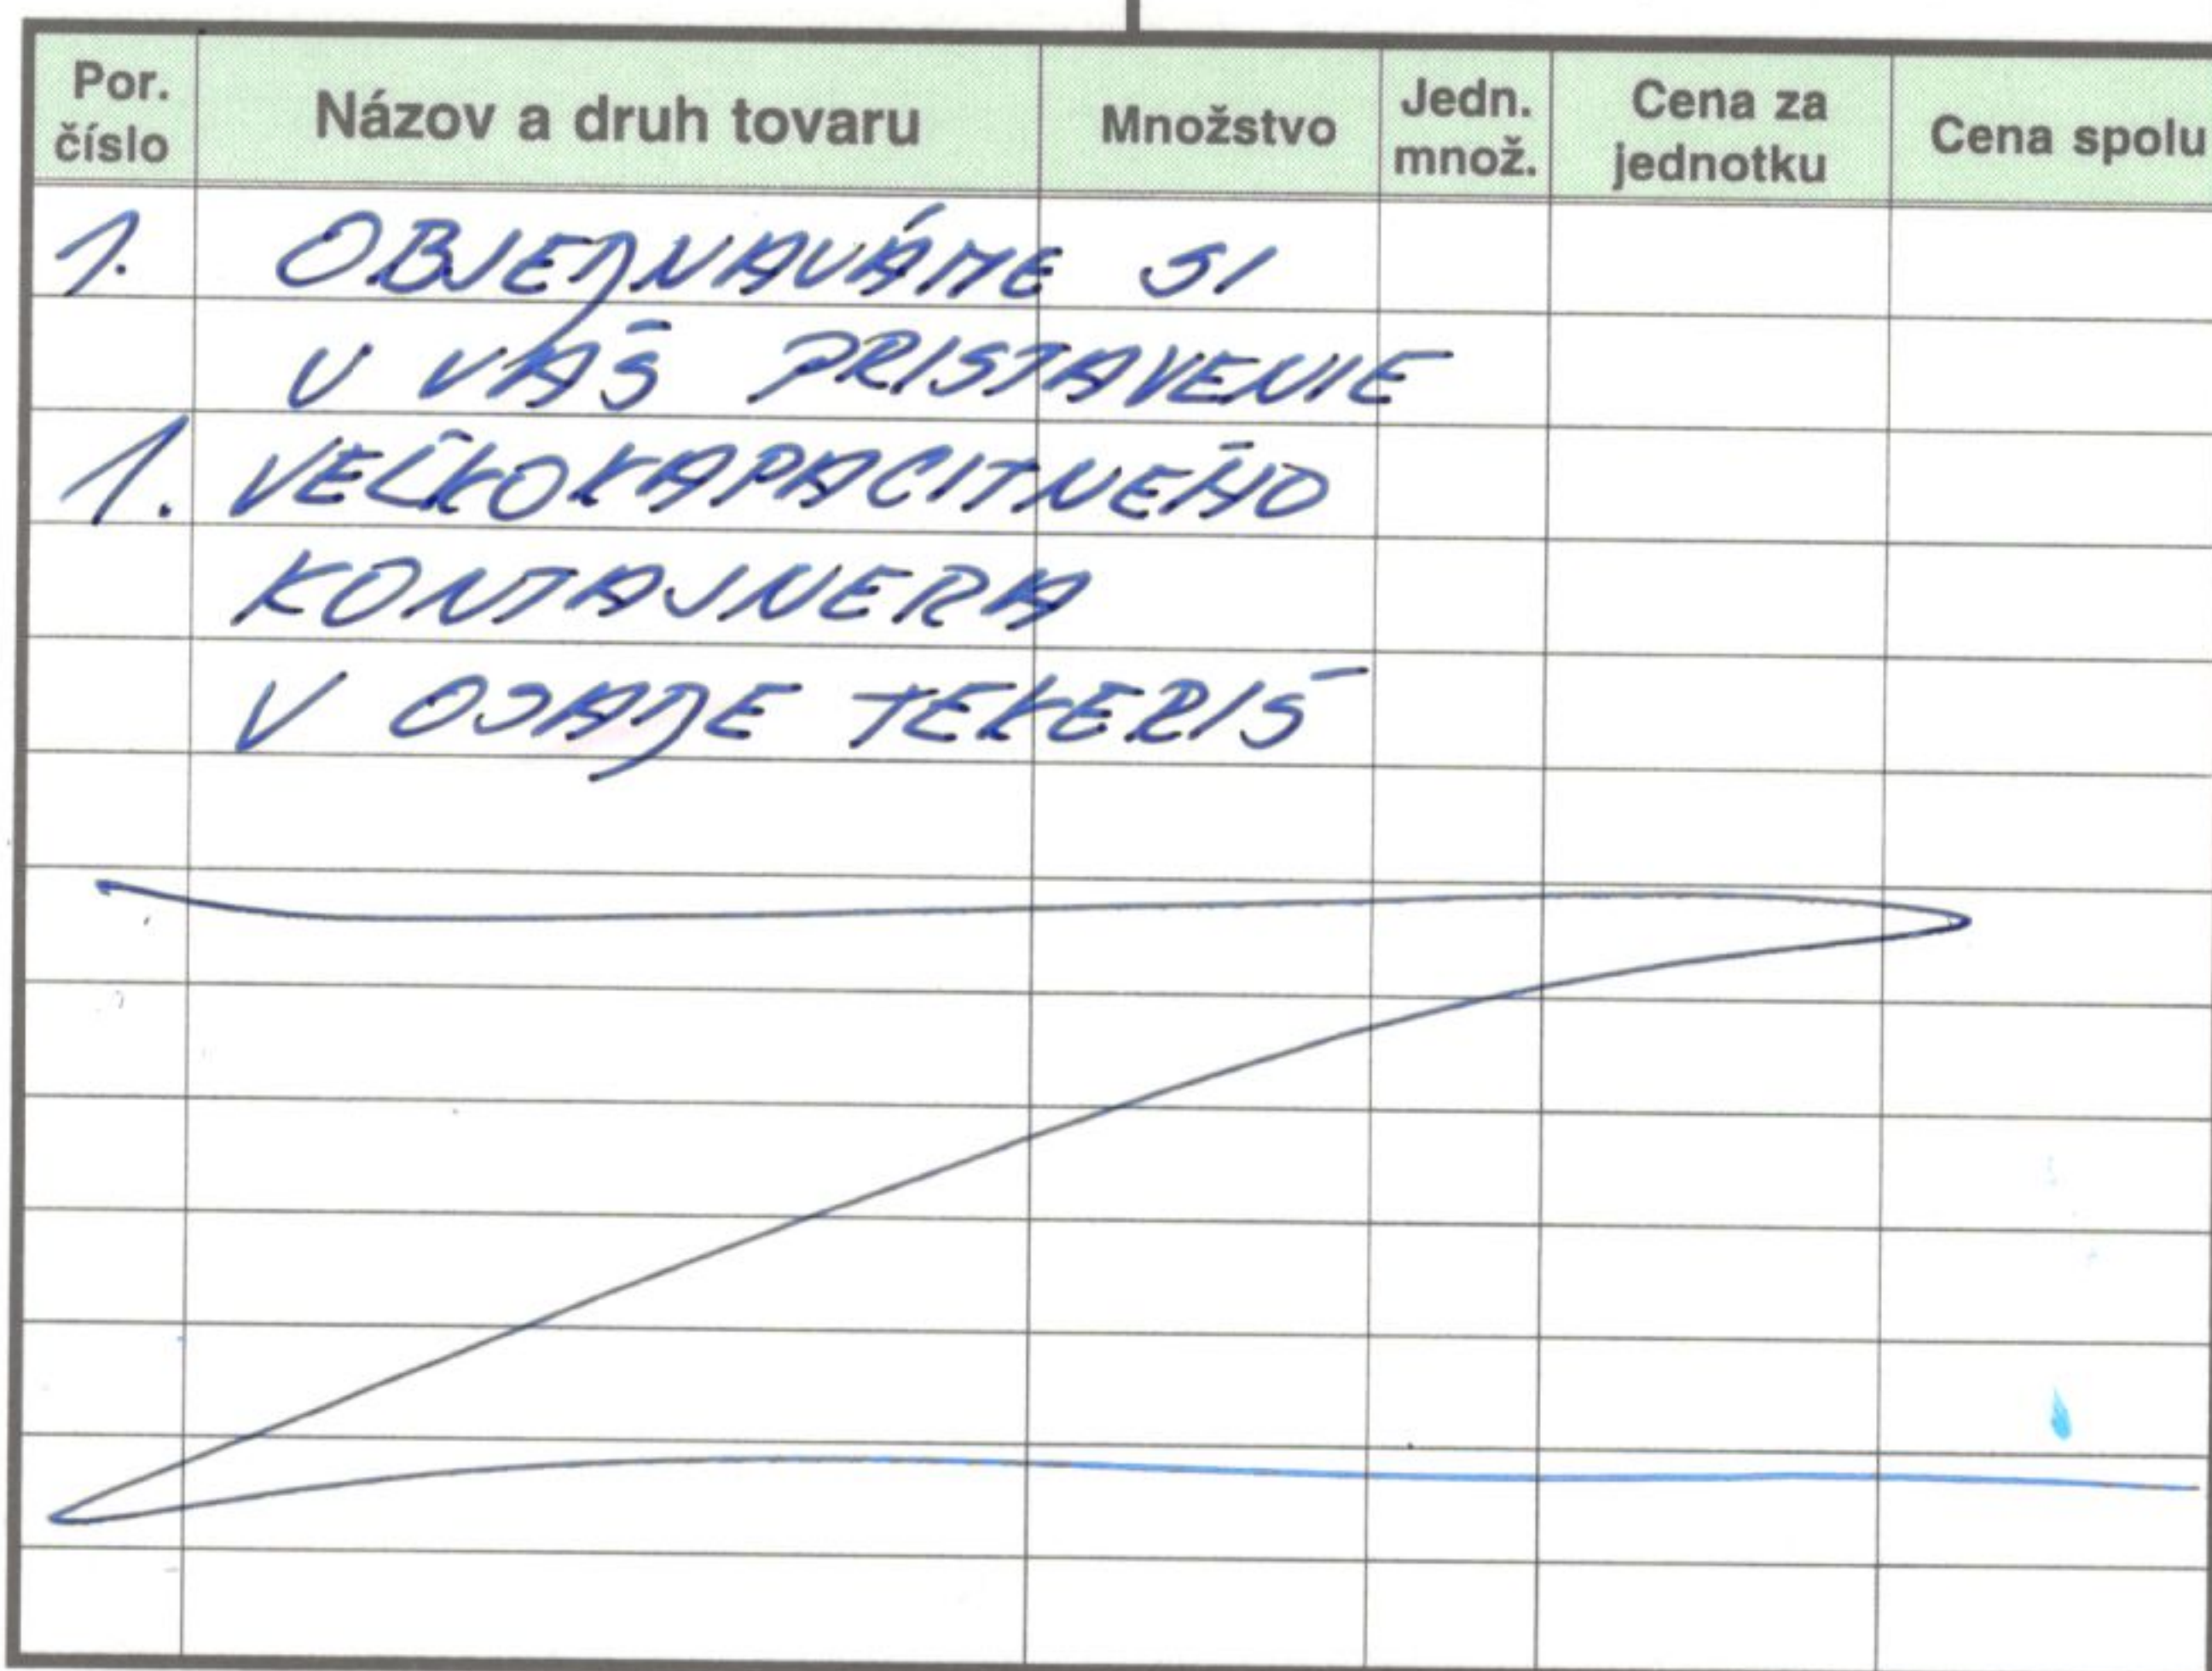 Por. číslo Názov a druh tovaru Množstvo Jedn. množ. Cena za jednotku Cena spolu
1. OBJEDNAVÁME SI
U VÁS PRISTAVENIE
1. VEĽKOKAPACITNÉHO
KONTAJNERA
V OSADE TEKERIŠ